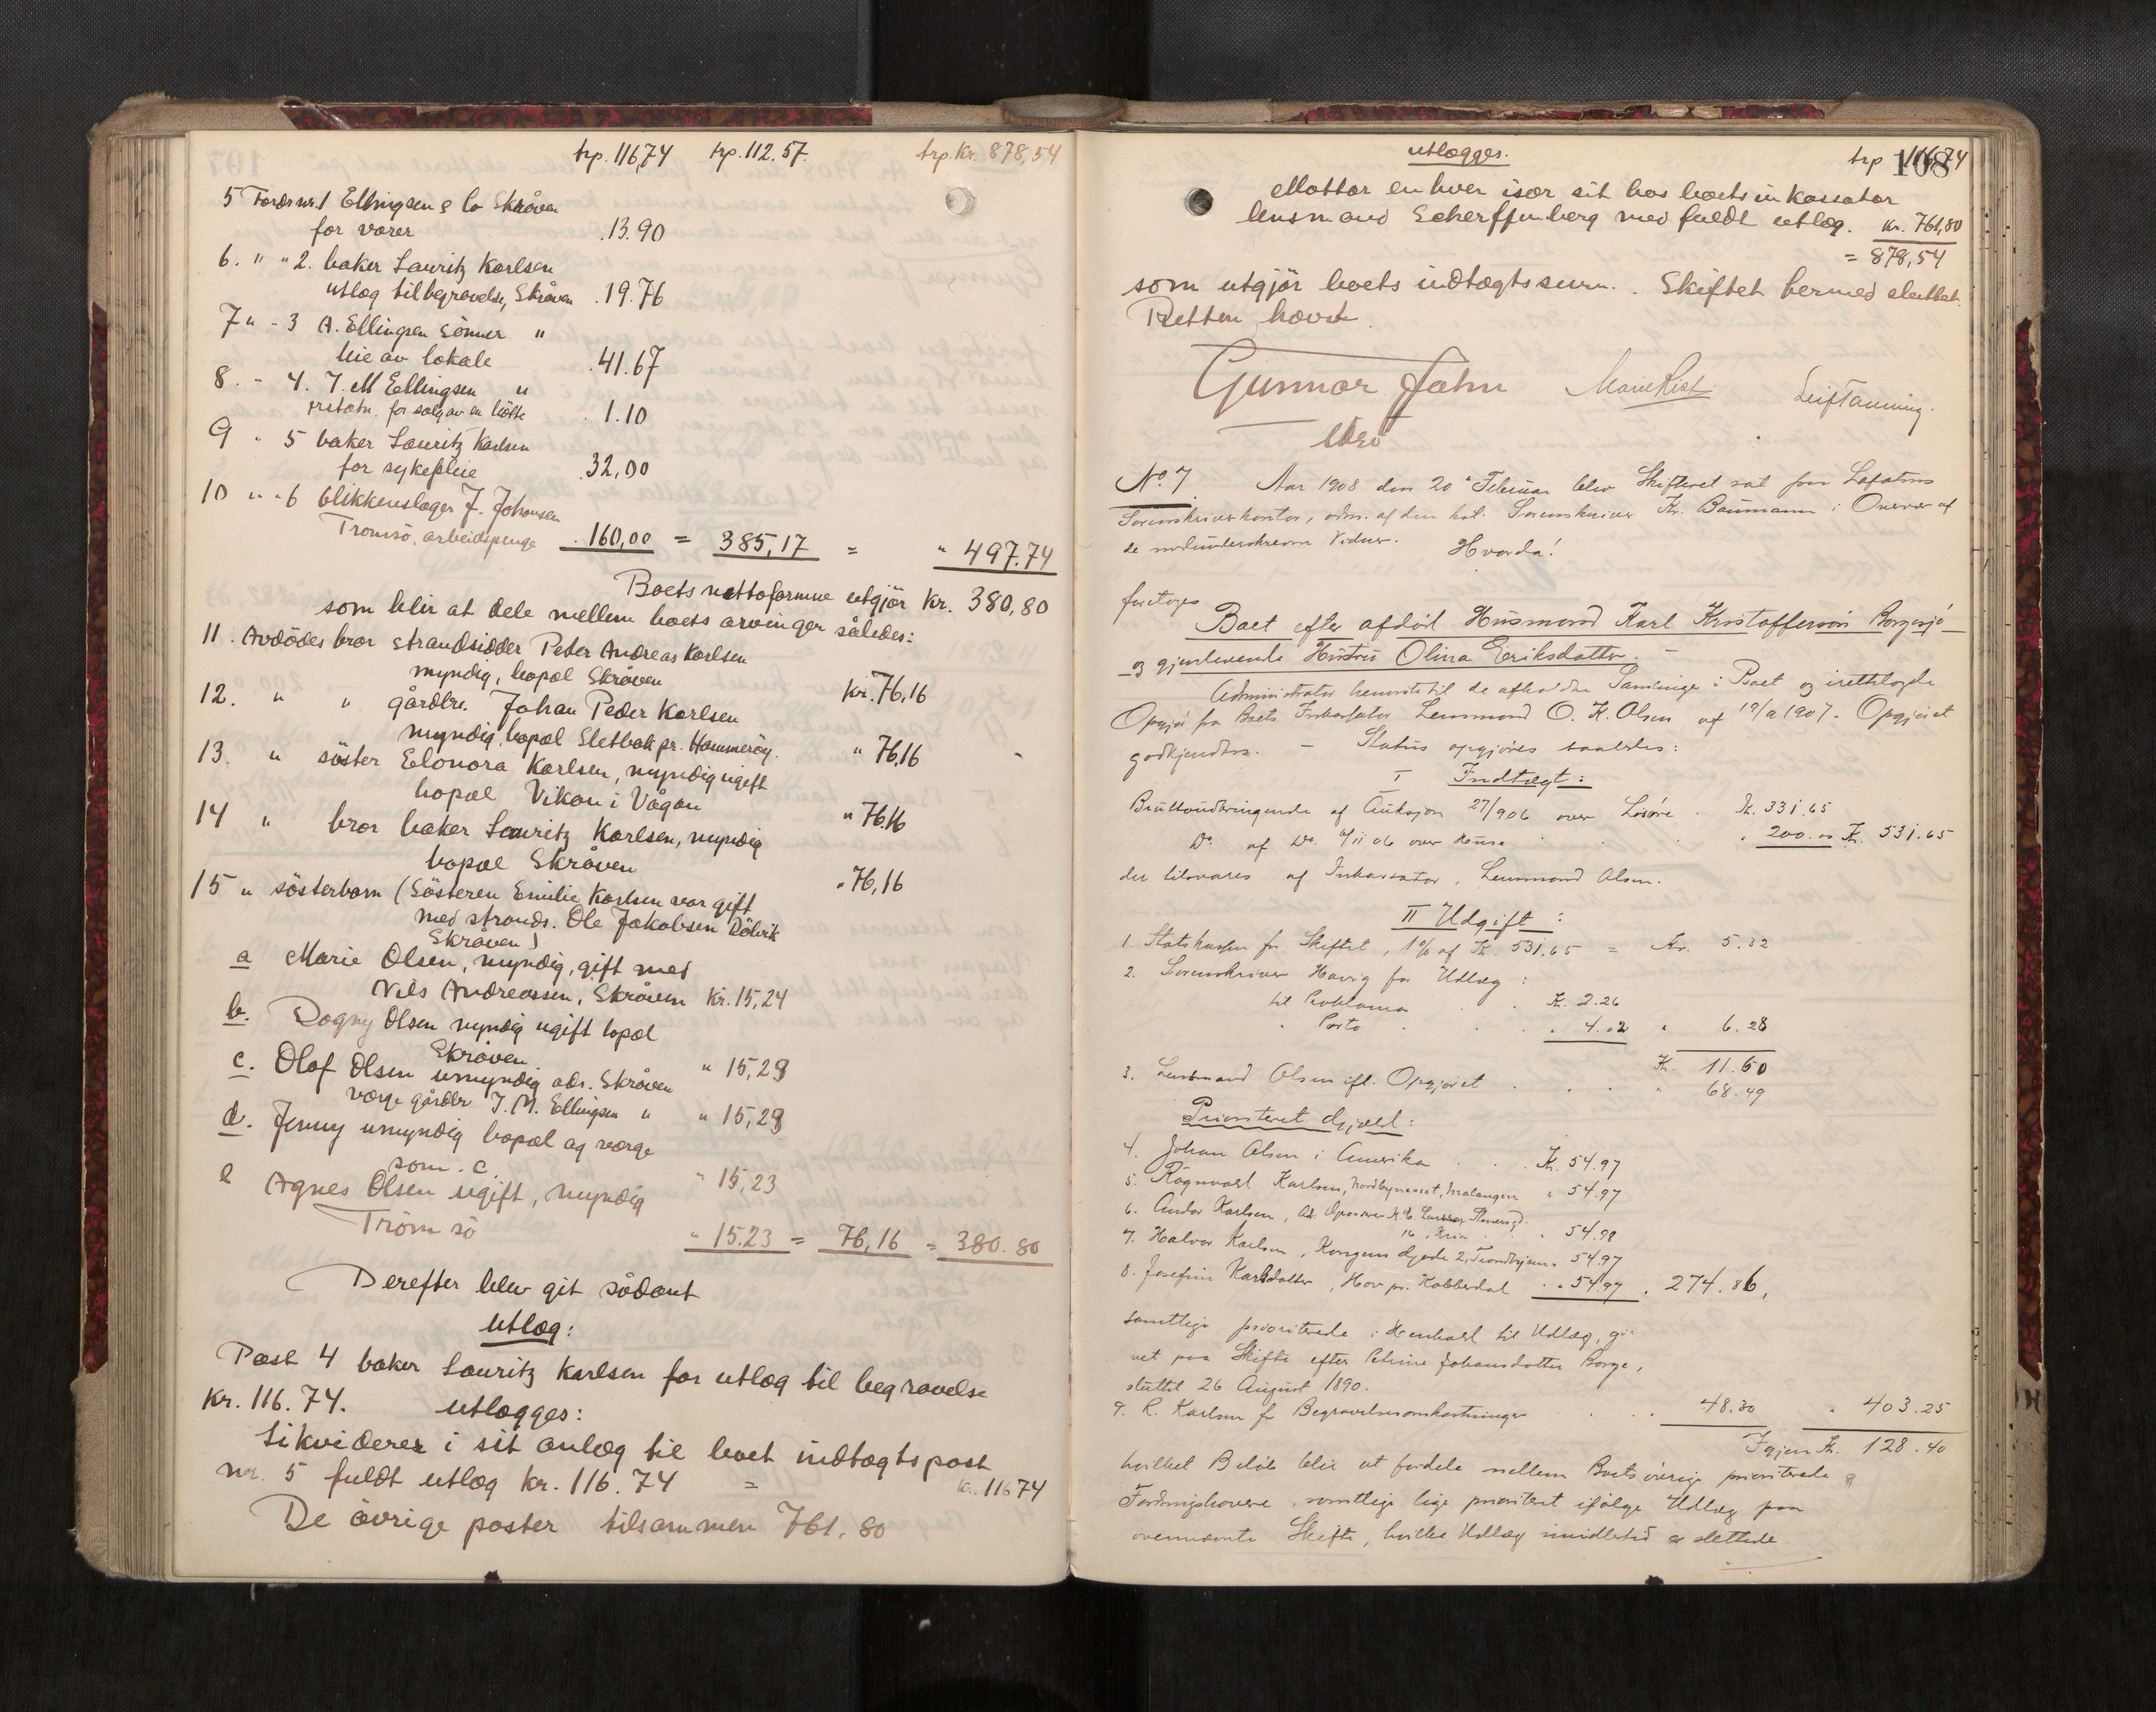 trp. 116,74 trp. 112.57. trp. kr. 878,54
5 Fordr nr. 1 Ellingsen & Co Skråven
for varer .13.90
6. " " 2. baker Lauritz Karlsen
utlæg til begravelse, Skråven .19.76
7 " - 3 A. Ellingsen Sönner "
leie av lokale .41.67
8. - 4. J. M Ellingsen "
for salg av en . 1.10
9 " 5 baker Lauritz Karlsen
for sykepleie .32,00
10 " " 6 blikkenslager J. Johansen
Tromsö, arbeidspenge .160,00 = 385,17 = " 497.74
Boets nettoformue utgjör kr. 380,80
som blir at dele mellem boets arvinger således:
11. Avdödes bror strandsidder Peter Andreas Karlsen
myndig, bopæl Skråven kr. 76,16
12. " " gårdbr. Johan Peder Karlsen
myndig, bopæl Sletbak pr. Hammeröy. " 76,16
13. " söster Elonora Karlsen, myndig ugift
bopæl Vikan i Vågan " 76,16
14 " bror baker Lauritz Karlsen, myndig
bopæl Skråven " 76,16
15 " sösterbarn (Sösteren Emilie Karlsen var gift
med strands. Ole Jakobsen Rölvik
Skråven)
a Marie Olsen, myndig, gift med
Nils Andreassen, Skråven kr. 15,24
b. Dagny Olsen myndig ugift bopæl
Skråven " 15,23
c. Olaf Olsen umyndig adr. Skråven
værge gårdbr J. M. Ellingsen " " 15,23
d. Jenny umyndig bopæl og værge
som . c. " 15,23
e Agnes Olsen ugift, myndig
Tromsö " 15.23 = 76,16 = 380.80
Derefter blev git sådant
utlæg:
Post 4 baker Lauritz Karlsen for utlæg til begravelse
kr. 116.74. utlægges:
Likviderer i sit anlæg til boet indtægtspost
nr. 5 fuldt utlæg kr. 116.74 = kr. 116 74
De övrige poster tilsammen 761.80
utlægges. trp 116,74
108
Mottar enhver især sit hos boets inkassator
lensmand Scherffenberg med fuldt utlæg. kr. 761,80
= 878,54
som utgjör boets indtægtssum. . Skiftet hermed sluttet.
Retten hævet.
Gunnar Jahn Marie Leif Tanning.
No. 7 Aar 1908 den 20de Februar blev Skifteret sat paa Lofotens
Sorenskriverkontor, adm. af den kst. Sorenskriver Kr. Baumann i Overvær af
de nedunderskrevne Vidner. Hvorda!
foretoges
Boet efter afdød Husmand Karl Kristoffersøn Borgesjö
og gjenlevende Hustru Olina Eriksdatter. –
Administrator henviste til de afholdte Samlinger i Boet og irettelagde
Opgjør fra Boets Inkassator Lensmand O. K. Olsen af 19/9 1907. Opgjøret
godkjendtes. – Status opgjøres saaledes:
I Indtægt:
Bruttoudbringende af Auksjon 27/9 06 over Løsøre . Kr. 331.65
Do. af Do. 9/11 06 over Huse . . . " 200.00 Kr. 531.65
der tilsvares af Inkassator, Lensmand Olsen.
II Udgift:
1. Statskassen for Skiftet, 1% af Kr. 531.65 = Kr. 5.32
2. Sorenskriver Havig for Udlæg:
til Proklama . . Kr. 2.26
" Porto . . . . 4.02 " 6.28
Kr. 11.60
3. Lensmand Olsen ifl. Opgjøret . . . " 68.49
Prioriteret Gjæld:
4. Johan Olsen i Amerika . . . Kr. 54.97
5. Ragnvald Karlsen, Nordbynesset, Malangen " 54.97
6. Andor Karlsen, " 54.98
7. Halvor Karlsen, Kongens gade 2, Trondhjem " 54.97
8. Josefine Karlsdatter, Hov pr. Kabbelvad . " 54.97 . 274.86,
samtlige prioriterede i Henhold til Udlæg, gi-
vet paa Skifte efter Petrine Johansdatter Borge,
sluttet 26 August 1890.
9. R. Karlsen for Begravelsesomkostninger . . . 48.30 " 403.25
Igjen Kr. 128.40
hvilket Beløb blir at fordele mellem Boets øvrige prioriterede
Fordringshavere, samtlige lige prioritert ifølge Udlæg paa
ovennævnte Skifte, hvilke Udlæg imidlertid er slettede